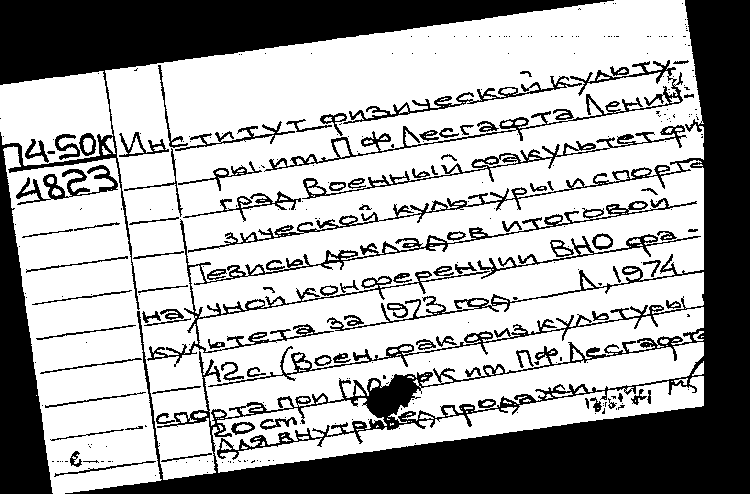 74-50К
4823
Институт физической культу-
ры им. П.Ф. Лесгафта. Ленин-
град. Военный факультет фи
зической культуры и спорта
Тезисы докладов итоговой
научной конференции ВНО фа-
культета за 1973 год. Л., 1974.
42 с. (Воен. фак. физ. культуры
спорта при ИФК им. П.Ф. Лесгафта
20 см.
Для внутривед продажи.